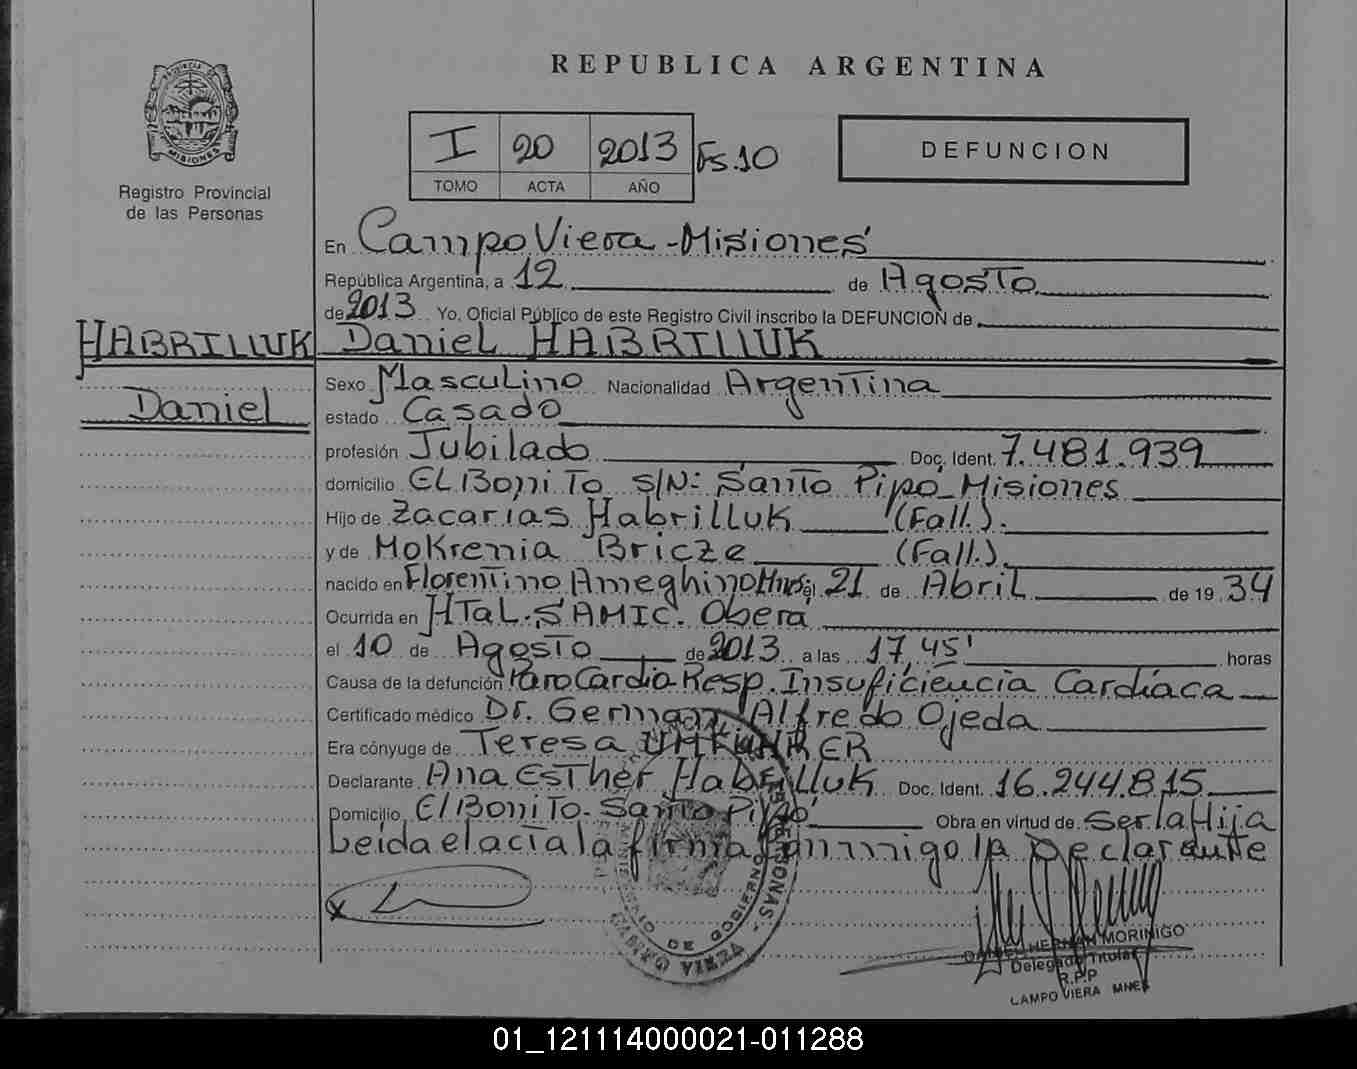 REPUBLICA ARGENTINA
PROVINCIA DE MISIONES
Registro Provincial
de las Personas
I 20 2013 Fs.10
TOMO ACTA AÑO
DEFUNCION
En Campo Viera - Misiones
República Argentina, a 12 de Agosto
de 2013 Yo, Oficial Público de este Registro Civil inscribo la DEFUNCION de
HABRILLUK Daniel HABRILLUK
Daniel
Sexo Masculino Nacionalidad Argentina
estado Casado
profesión Jubilado Doc. Ident. 7.481.939
domicilio El Bonito s/N: Santo Pipó Misiones
Hijo de Zacarias Habrilluk (Fall.)
y de Mokrenia Bricze (Fall.)
nacido en Florentino Ameghino Mnes el 21 de Abril de 19 34
Ocurrida en HTal. SAMIC. Oberá
el 10 de Agosto de 2013 a las 17,45' horas
Causa de la defunción Paro Cardio Resp. Insuficiencia Cardíaca
Certificado médico Dr. German Alfredo Ojeda
Era cónyuge de Teresa
Declarante Ana Esther Habrilluk Doc. Ident. 16.244.815
Domicilio El Bonito - Santo Pipó Obra en virtud de ser la Hija
Leida el acta la firma conmigo la Declarante
X
DE GOBIERNO
CAMPO VIERA
DANIEL HERNAN MORINIGO
Delegado Titular
R.P.P
CAMPO VIERA MNES
01_121114000021-011288